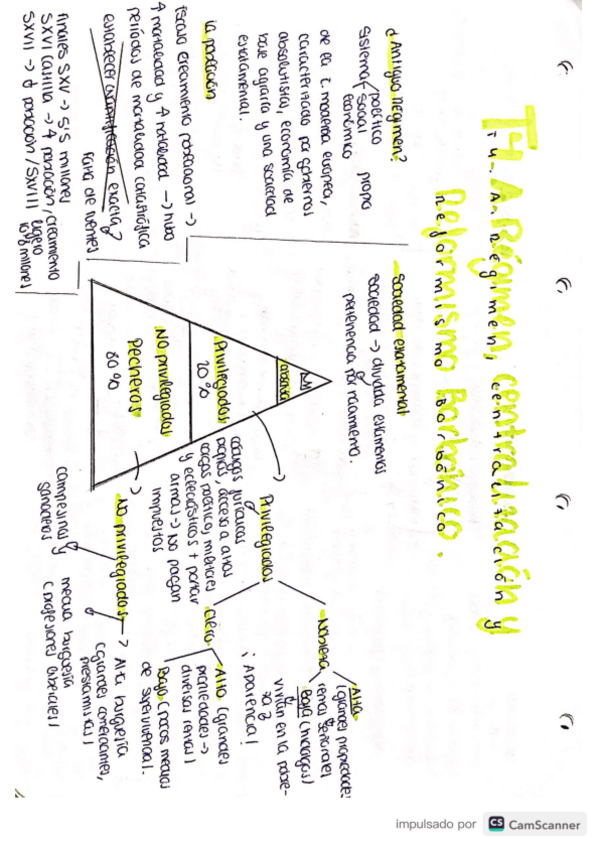 T4. A. Régimen, centralización y
Reformismo Borbónico.
¿Antiguo Régimen?
Sistema político
social
económico propio
de la E. moderna europea,
caracterizado por gobiernos
absolutistas, economía de
base agraria y una sociedad
estamental.
La población
Escaso crecimiento poblacional →
↑ mortalidad y ↑ natalidad → hubo
períodos de mortalidad catastrófica
establecer exacta?
Falta de fuentes
finales SXV → 5'5 millones
SXVI Castilla → ↑ población/crecimiento
ligero
SXVII → ↓ población/SXVIII
millones
- Sociedad estamental
sociedad → dividida estamentos
pertenencia por nacimiento.
M
Privilegiados
20%
NO privilegiados
Pecheros
80%
Privilegiados
códigos jurídicos
propios, acceso a altos
cargos políticos, militares
y eclesiásticos + portar
armas → No pagan
impuestos
- Nobleza
Alta
(grandes propiedades
rentas señoriales
Baja (hidalgos)
vivían en la pobre-
za?
¡Apariencia!
Clero
- Alto (grandes
propiedades →
diversas rentas)
Bajo (pocos medios
de supervivencia.
No privilegiados
→ Alta burguesía
(grandes comerciantes,
prestamistas)
media burguesía
(profesiones liberales)
campesinos y
ganaderos
impulsado por CS CamScanner